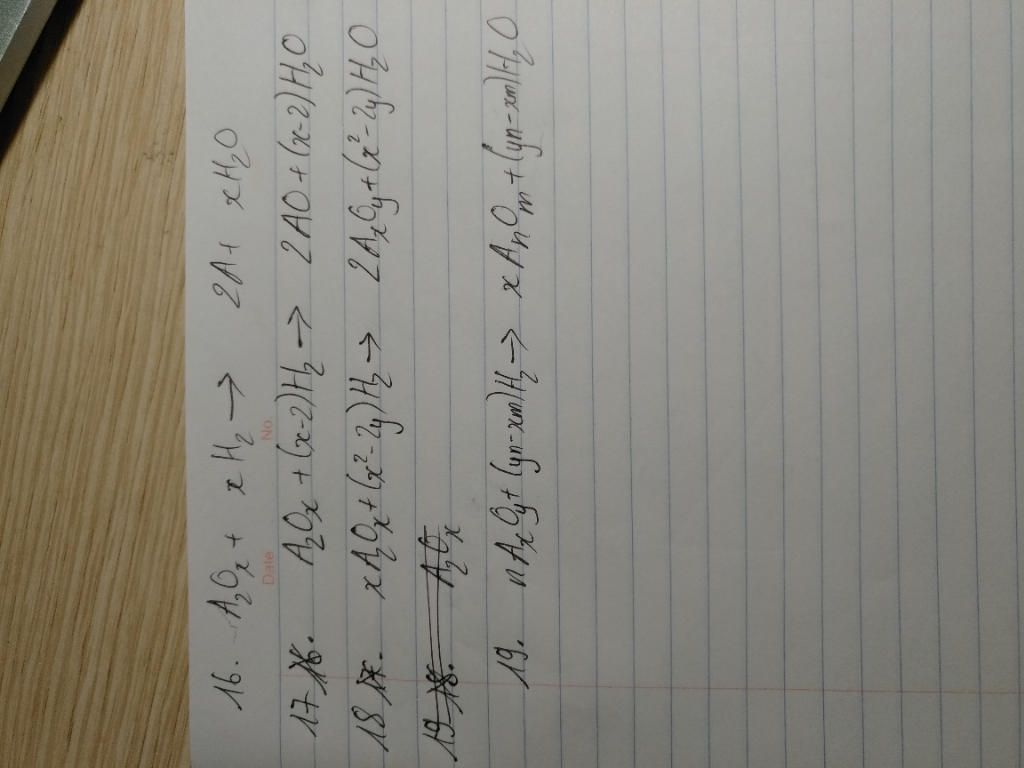 16. A₂Oₓ + xH₂ → 2A + xH₂O
Date No.
17 16. A₂Oₓ + (x-2)H₂ → 2AO + (x-2)H₂O
18 17. xA₂Oₓ + (x²-2y)H₂ → 2AₓOy + (x²-2y)H₂O
19 18. A₂Oₓ
19. nAₓOy + (yn-xm)H₂ → xAₙOₘ + (yn-xm)H₂O